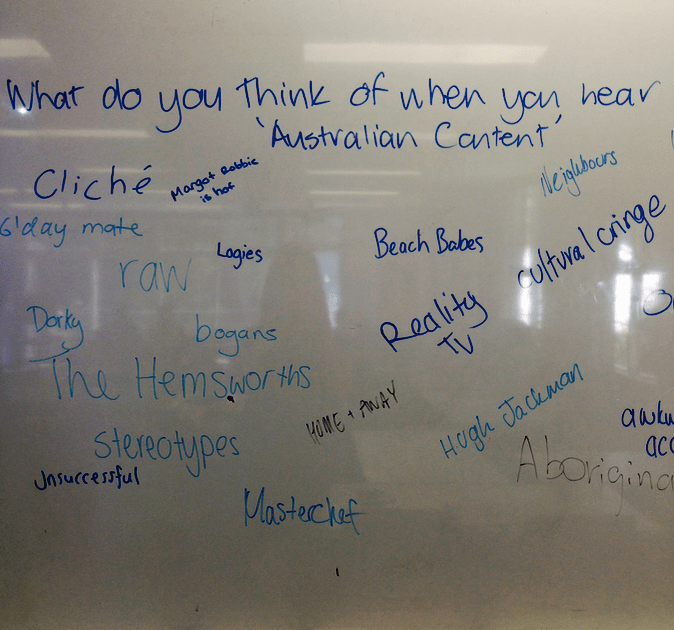 What do you think of when you hear
'Australian Content'
Cliché
Margot Robbie
is hot
Neighbours
G'day mate
Logies
Beach Babes
cultural cringe
raw
Dorky
bogans
Reality
TV
The Hemsworths
HOME + AWAY
Hugh Jackman
Stereotypes
Unsuccessful
Masterchef